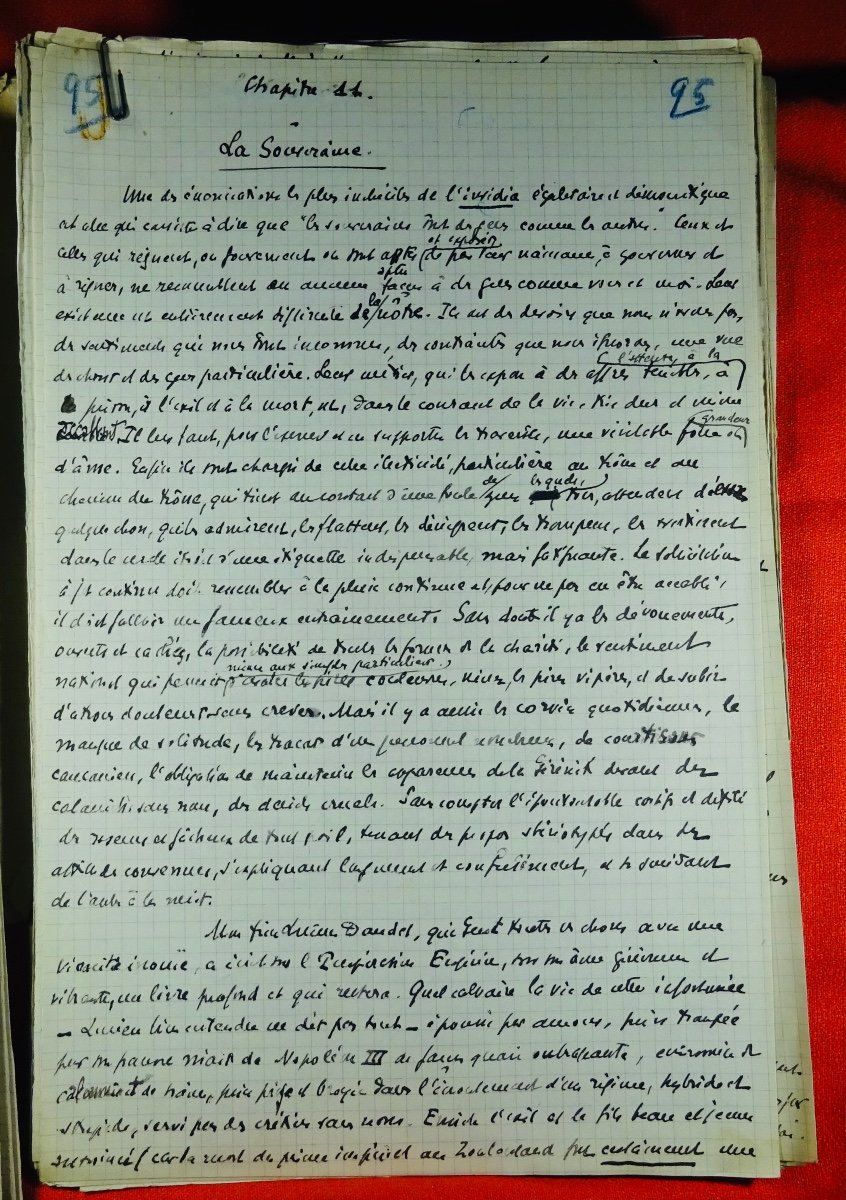 95
Chapitre 11.
95
La Souveraine.
Une des énonciations les plus imbéciles de l'invidia égalitaire et démocratique
est celle qui consiste à dire que "les souverains sont des gens comme les autres." Ceux et
celles qui règnent, ou gouvernent ou sont aptes et exposés de par leur naissance, à gouverner et
à régner, ne ressemblent en aucune façon à des gens comme vous et moi. Leur
existence est entièrement différente de la nôtre. Ils ont des devoirs que nous n'avons pas,
des sentiments qui nous sont inconnus, des contraintes que nous ignorons, une vue
des choses et des gens particulière. Leur métier, qui les expose à des affres terribles, à l'attentat, à la
prison, à l'exil et à la mort, est, dans le courant de la vie, très dur et même
Il leur faut, pour l'exercer et en supporter la traverse, une véritable force et grandeur
d'âme. Enfin ils sont chargés de cette électricité, particulière au trône et au
chemin du trône, qui tient au contact d'une foule de gens lesquels attendent d'eux
quelque chose, qui les admirent, les flattent, les dénigrent, les trompent, les
dans le cercle étroit d'une étiquette indispensable, mais fatigante. La sollicitation
à jet continu doit ressembler à la pluie continue et, pour ne pas en être accablé,
il doit falloir un fameux entraînement. Sans doute il y a les dévouements,
ouverts et cachés, la possibilité de toutes les formes de la charité, le sentiment
national qui permet même aux simples particuliers d'avaler les pires couleuvres, voire les pires vipères, et de subir
d'atroces douleurs sans crever. Mais il y a aussi les corvées quotidiennes, le
manque de solitude, les tracas d'un personnel nombreux, de courtisans
cancaniers, l'obligation de maintenir les apparences de la sérénité devant des
calamités sans nom, des deuils cruels. Sans compter l'épouvantable cortège et défilé
de raseurs et fâcheux de tout poil, tenant des propos stéréotypés dans des
attitudes convenues, s'expliquant longuement et confusément, et se suivant
de l'aube à la nuit.
Mon frère Lucien Daudet, qui sent toutes ces choses avec une
vivacité inouïe, a écrit sur l'Impératrice Eugénie, sur son âme généreuse et
vibrante, un livre profond et qui restera. Quel calvaire la vie de cette infortunée
– Lucien bien entendu ne dit pas tout – épousée par amour, puis trompée
par ce pauvre niais de Napoléon III de façon quasi outrageante, environnée de
calomnies de trône, puis prise et broyée dans l'écroulement d'un régime, hybride et
stupide, servi par des crétins sans nom. Ensuite l'exil et le fils beau et jeune
assassiné (car la mort du prince impérial au Zoulouland fut certainement une